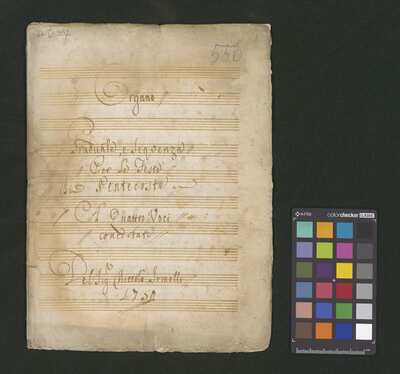 550
Organo
Graduale e Sequenza
Per La Festa
Di Pentecoste
A Quattro Voci
concertate
Del Sig.r Niccolò Jomelli
colorchecker CLASSIC